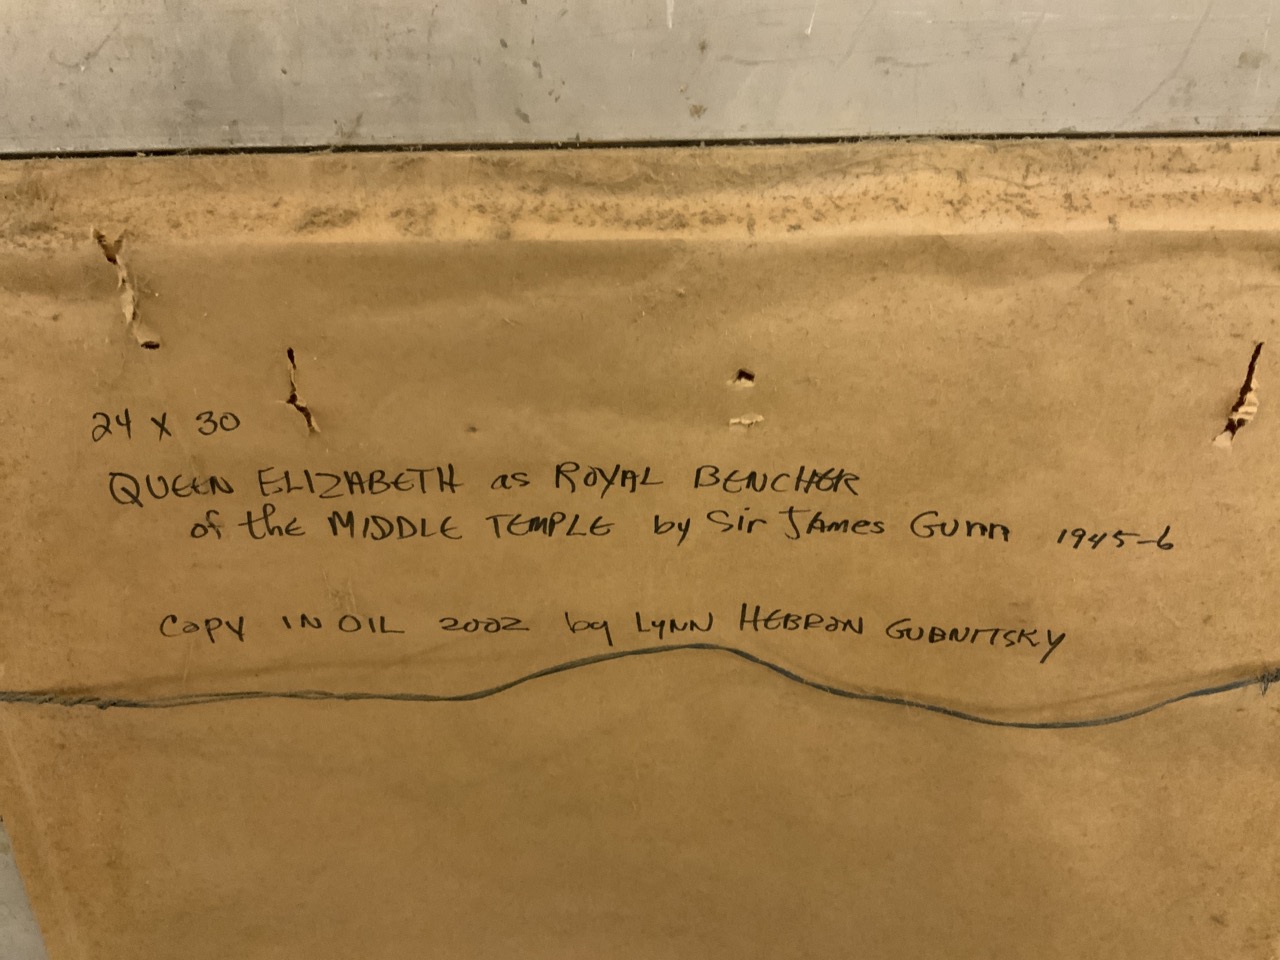 24 X 30
QUEEN ELIZABETH as ROYAL BENCHER
of the MIDDLE TEMPLE by Sir James Gunn 1945-6
Copy IN OIL 2002 by LYNN HEBRON GUBNITSKY